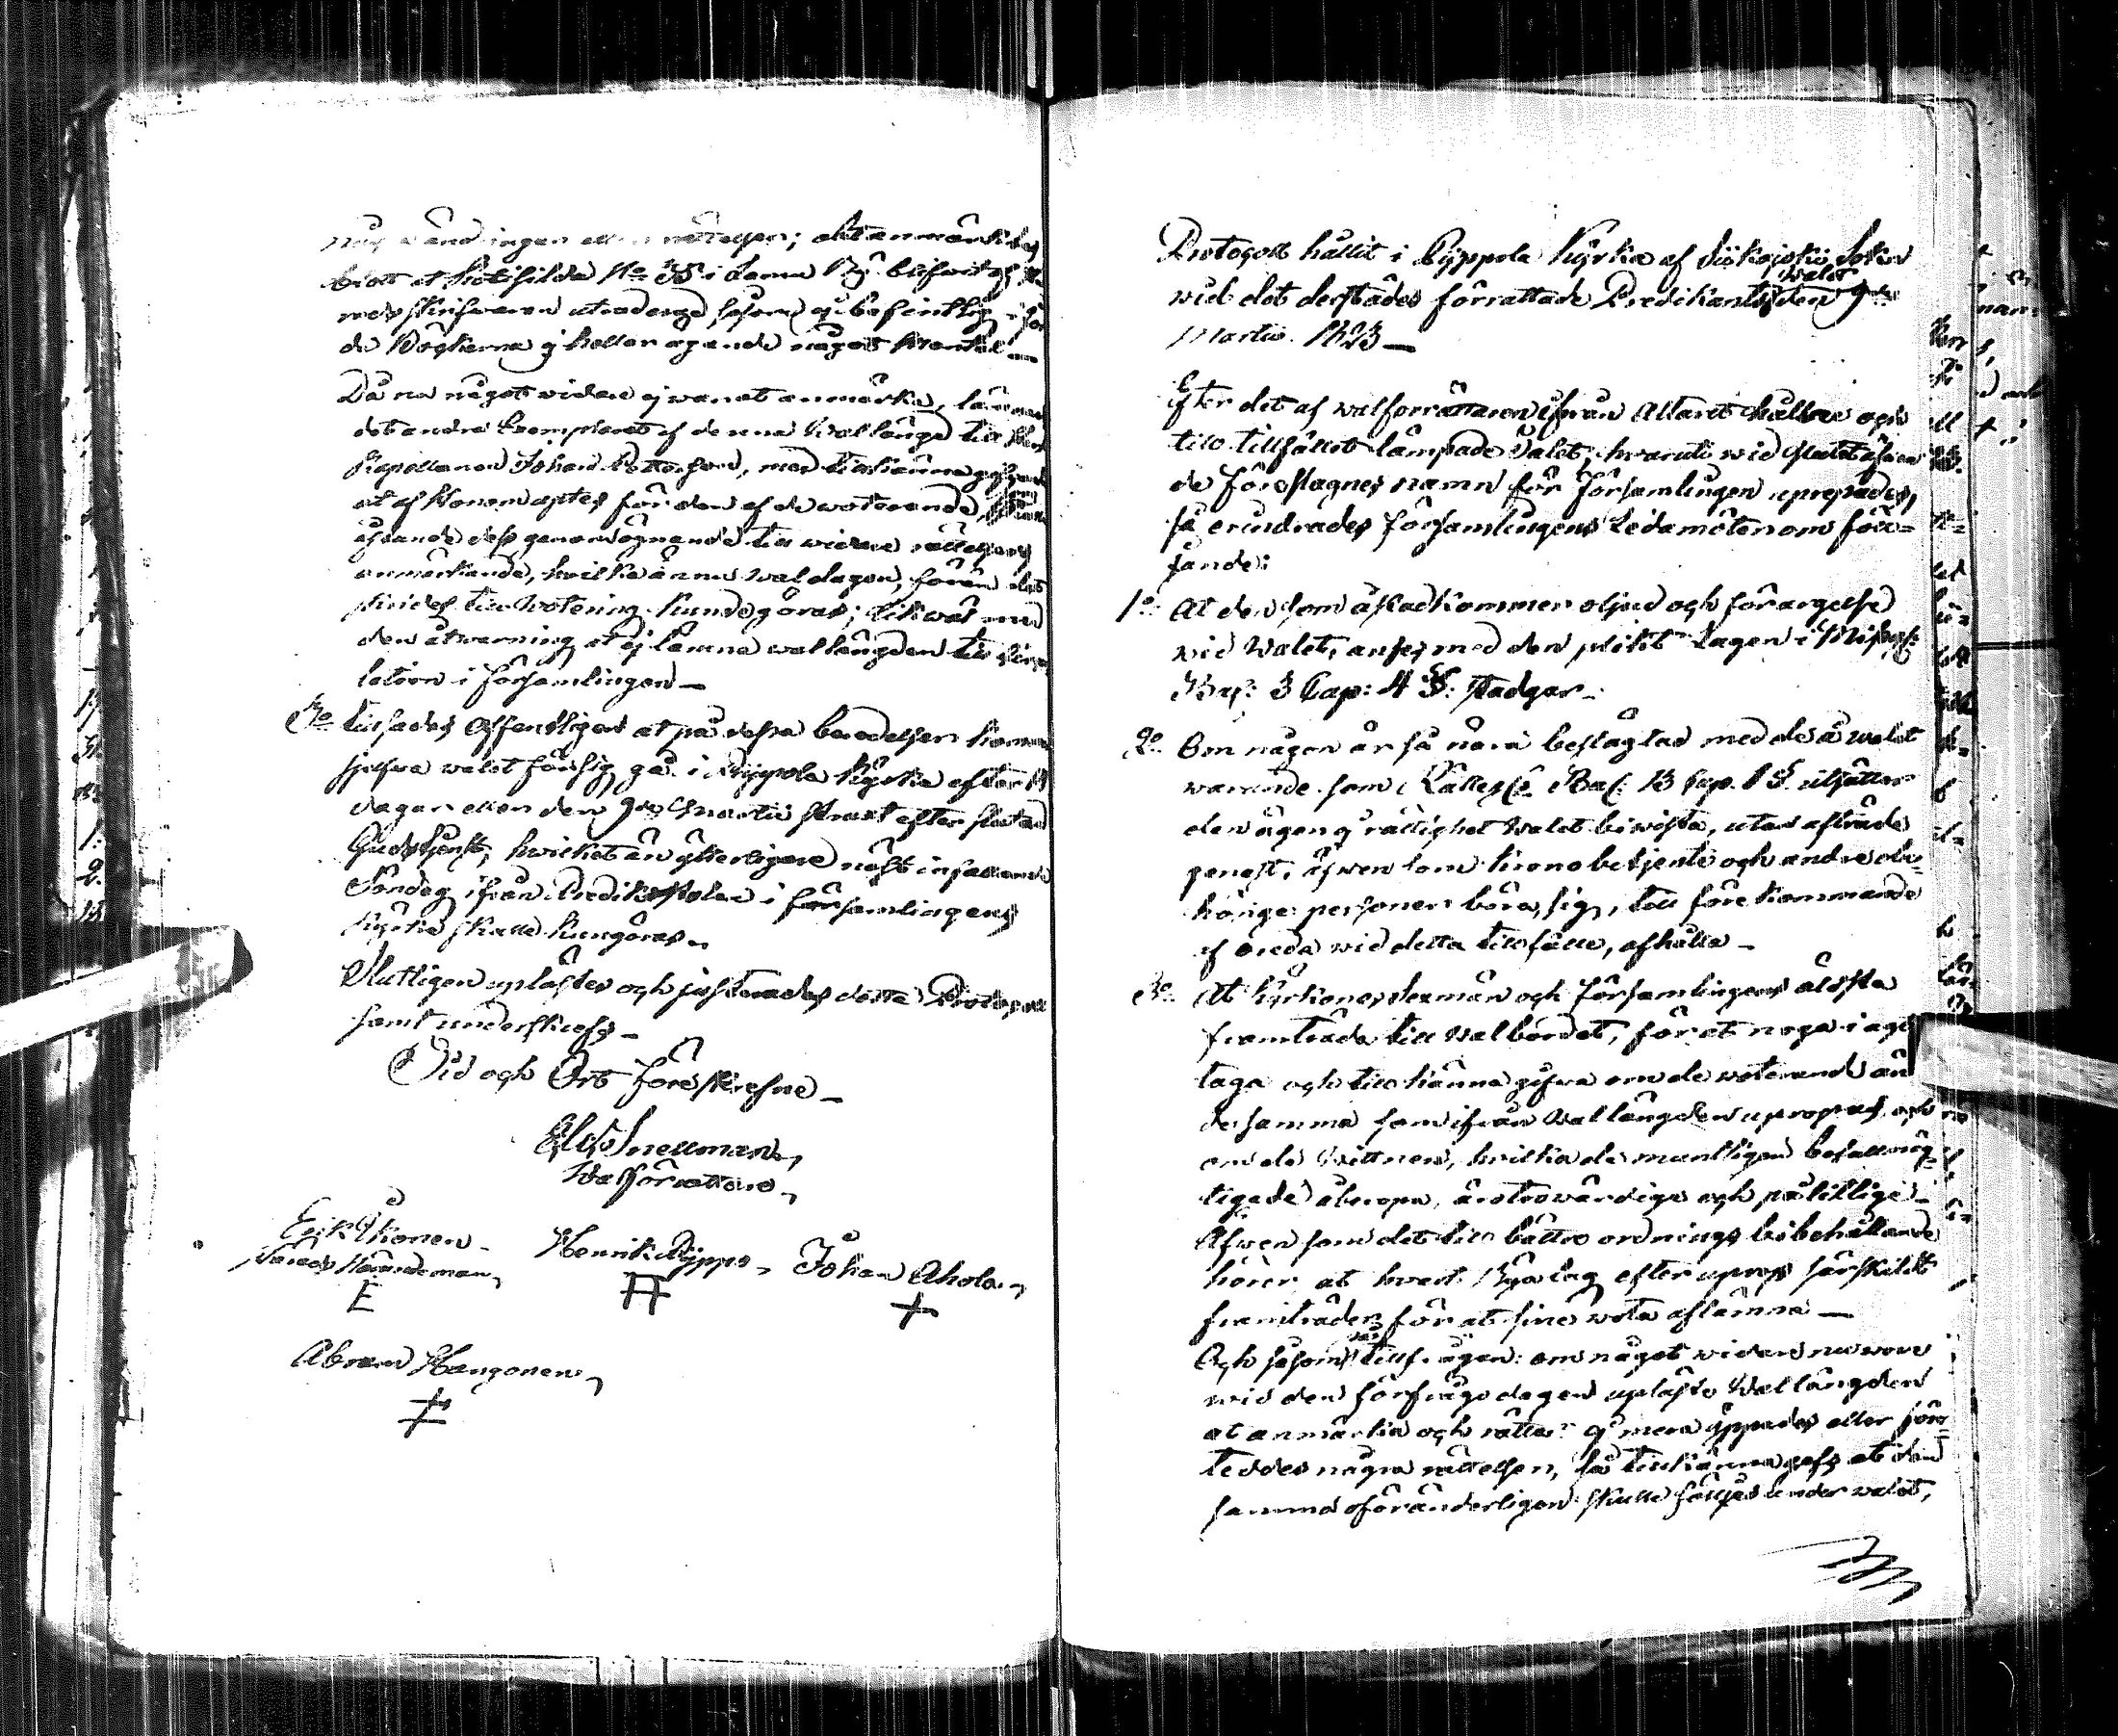 ändringar eller rättelser; det anmärktes
blot at Kotihilda No 35 i Lamu By blifwit af
medskrifwaren utraderad, såsom ej befintlig i
de Böckerna ej heller ägande något Mantal —
Då nu något widare ej war at anmärka, lämnades
det andra Exemplaret af denna Wallängd till
Kapellanen Johan Pettersson, med tillkännagifwande
at af honom uptes för den af de woterande,
åstunda dess genomögnande till widare rättelsers
anmärkande, hwilka ännu Waldagen, förän det
skrides till Wotering kunde göras; likwäl med
den åtwarning at ej lämna wallängden till circu
lation i församlingen —
tillsades Offentligen at på dessa beredelser kommer
sjelfwa walet för sig gå i Pyppola Kyrka efter 14
dagar eller den 9de Martii strax efter slutad
Gudstjenst, hwilket än ytterligare näst infallande
Söndag ifrån Predikstolen i församlingens
Kyrka skall kungöras.
Slutligen uplästes och justerades detta Protocoll
samt underskrefs —
Tid och Ort föreskrefne —
Snellman,
Walförrättare,
Erik Ikonen
Härads Nämndeman,
E
Henrik Pyppo, Johan Ahola,
Abram Hangonen,
Protocoll hållit i Pyppola Kyrka af Siikajoki Sokn
wid det derstädes förrättade Predikants walet den 9de
Martii 1823 —
Efter det af walförrättaren ifrån Altaret hållne och
till tillfället lämpade Talet, hwaruti wid slutet äfwen
de Föreslagnes namn för Församlingen upropades,
så erindrades församlingens Ledamöter om föl=
jande:
1o At den som åstadkommer oljud och förargelse
wid Walet, anses med den plikt Lagen i Missg:
Bal: 3 Cap: 4 §: stadgar —
2o Om någon är så nära beslägtad med de å walet
warande som Rätteg: Bal: 13 Cap. 1 §. utsätter
den ägen ej rättighet Walet biwista, utan afträde
genast, äfwen som kronobetjente och andre obe=
hörige personer böra sig, till förekommande
af oreda wid detta tillfälle, afhålla —
3o At Kyrkones sexmän och Församlingens äldsta
framträda till Walbordet, för at noga i agt
taga och till känna gifwa om de woterande än
desamma som ifrån Wallängden upropas, och
om de Wittnen, hwilka de muntligen befullmäg=
tigade åberopa, äro trowärdige och pålitlige —
Äfwen som det till bättre ordnings bibehållande
hörer at hwart Byalag efter uprop särskildt
framträder för at sine wota aflämna —
Och såsom wid tillfrågan: om något widare nu wore
wid den förfrågodagen upläste Wallängden
at anmärka och rätta? ej mera yppades eller före=
teddes några rättelser, så tillkännagafs at den
samma oföränderligen skulle följas under walet,